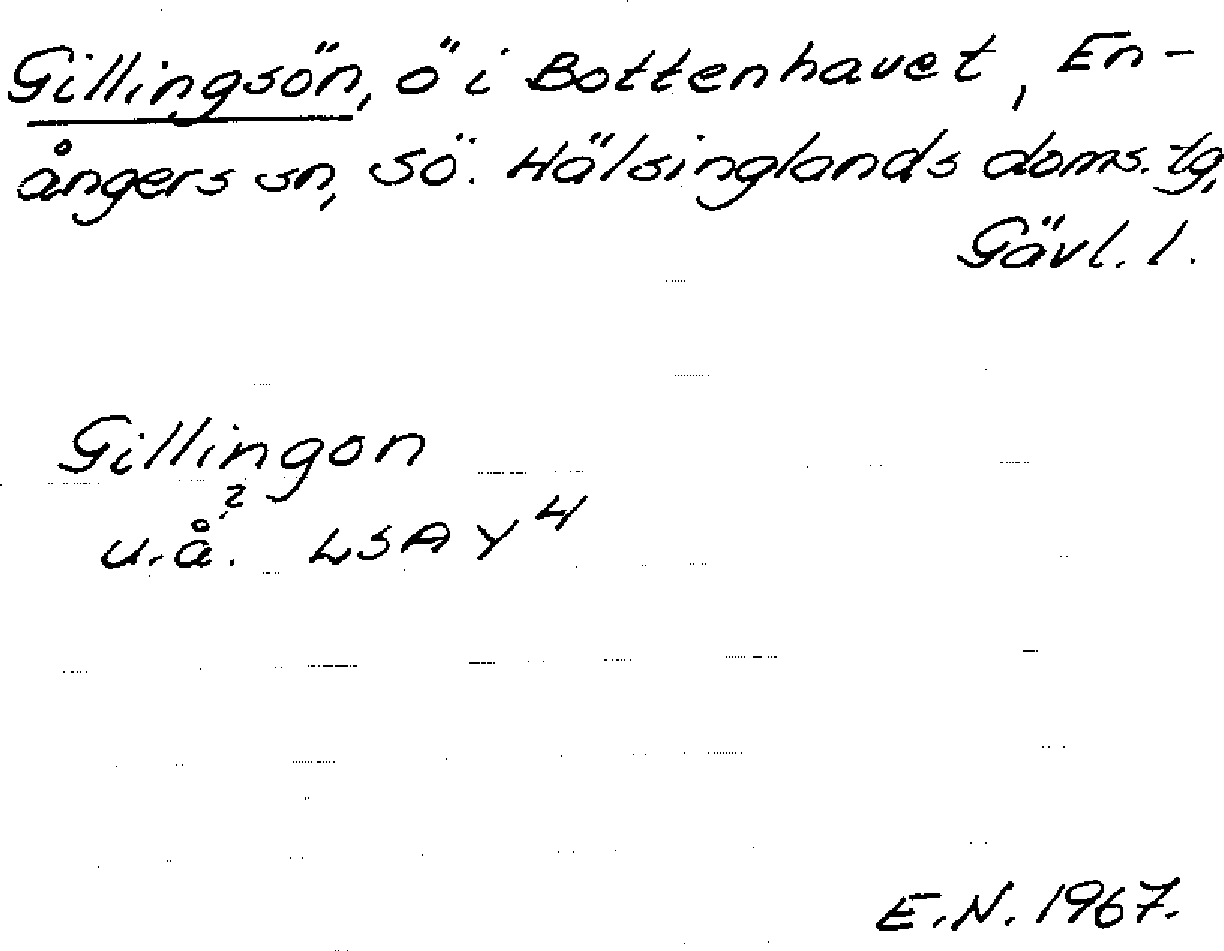 Gillingsön, ö i Bottenhavet, En-
ångers sn, Sö. Hälsinglands doms. tg,
Gävl. l.
Gillingon
?
u.å. LSA Y 4
E.N. 1967.